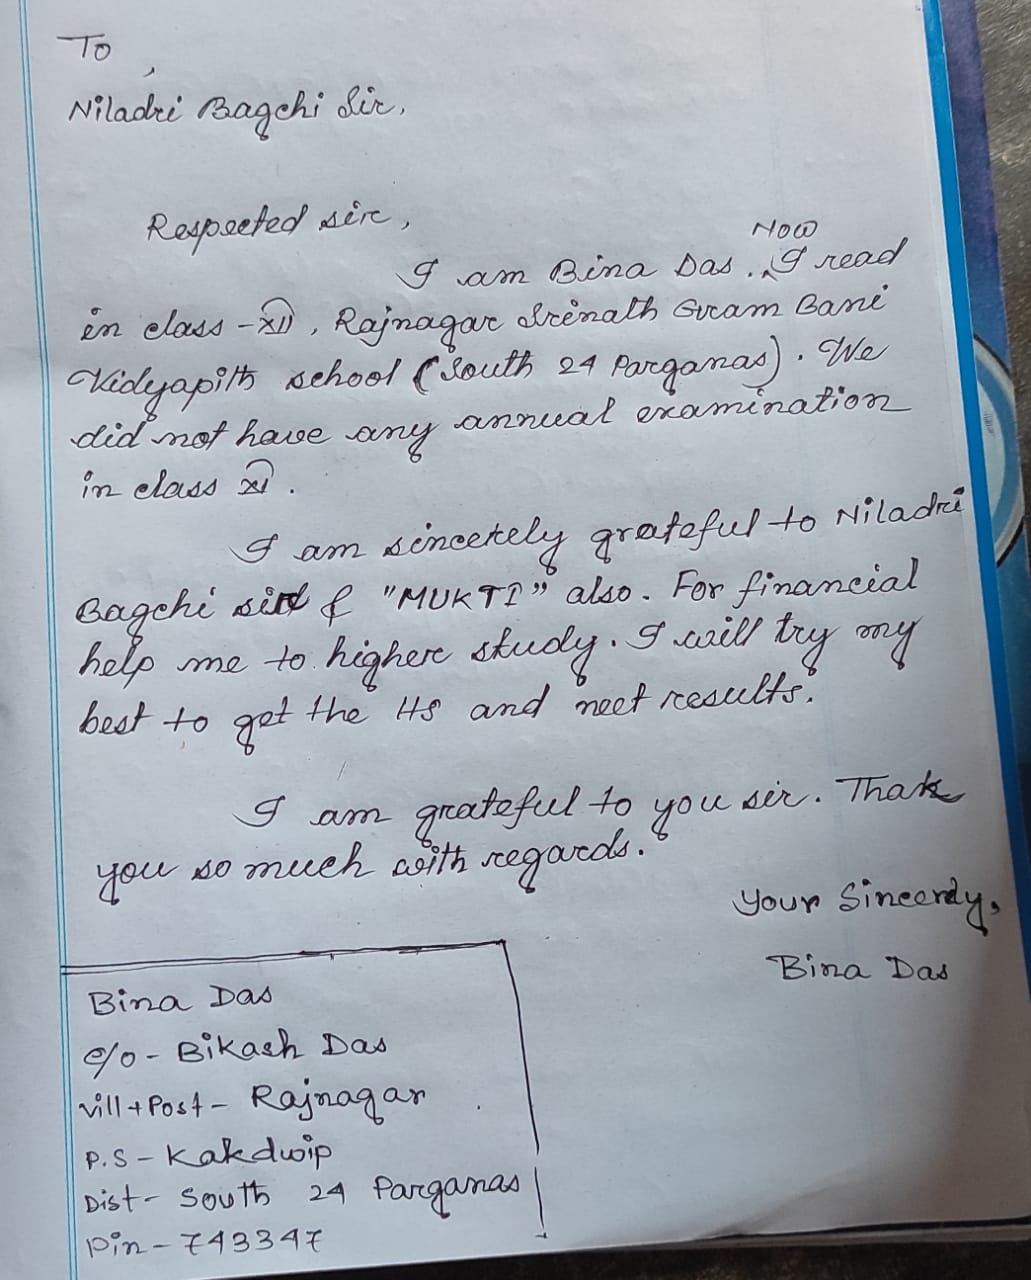 To,
Niladri Bagchi Sir,
Respected sir,
Now
I am Bina Das. I read
in class - XII, Rajnagar Srinath Gram Bani
Vidyapith school (South 24 Parganas). We
did not have any annual examination
in class XI.
I am sincerely grateful to Niladri
Bagchi sir & "MUKTI" also. For financial
help me to higher study. I will try my
best to get the HS and neet results.
I am grateful to you sir. Thak
you so much with regards.
Your Sincerely,
Bina Das
Bina Das
c/o - Bikash Das
vill + Post - Rajnagar
P.S - Kakdwip
Dist - South 24 Parganas
Pin - 743347